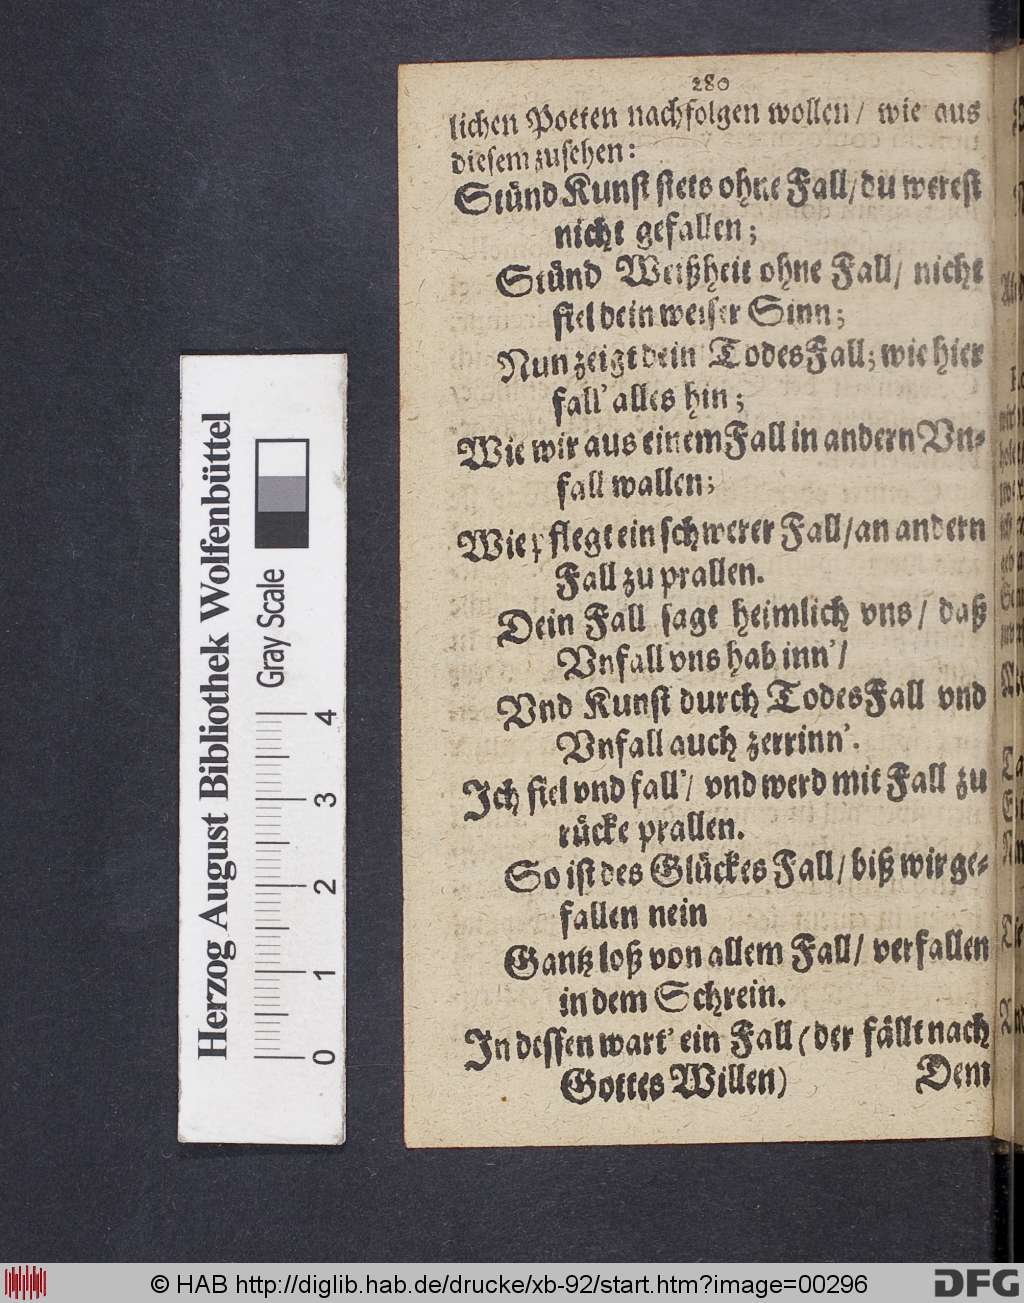 280
lichen Poeten nachfolgen wollen/ wie aus
diesem zusehen:
Stünd Kunst stets ohne Fall/du werest
nicht gefallen;
Stünd Weißheit ohne Fall/ nicht
fiel dein weiser Sinn;
Nun zeigt dein TodesFall; wie hier
fall' alles hin;
Wie wir aus einem Fall in andern Vn-
fall wallen;
Wie pflegt ein schwerer Fall/an andern
Fall zu prallen.
Dein Fall sagt heimlich vns/ daß
Vnfall vns hab inn'/
Vnd Kunst durch TodesFall vnd
Vnfall auch zerrinn'.
Ich fiel vnd fall'/ vnd werd mit Fall zu
rücke prallen.
So ist des Glückes Fall/ biß wir ge-
fallen nein
Gantz loß von allem Fall/ verfallen
in dem Schrein.
In dessen wart' ein Fall (der fällt nach
Gottes Willen)
Dem
Herzog August Bibliothek Wolfenbüttel
Gray Scale
0 1 2 3 4
© HAB http://diglib.hab.de/drucke/xb-92/start.htm?image=00296
DFG